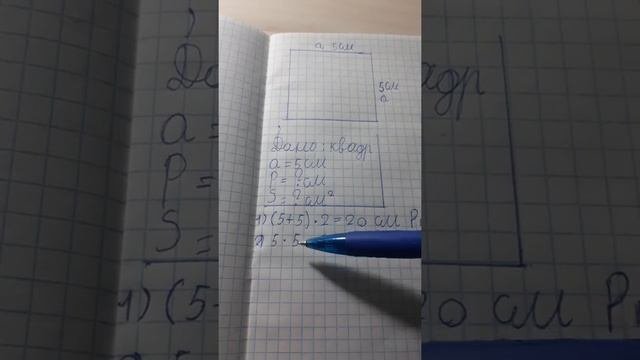 a 5см
5см
a
Дано: квадр
a = 5см
P = ? см
S = ? см²
1) (5+5) · 2 = 20 см
2) 5 · 5